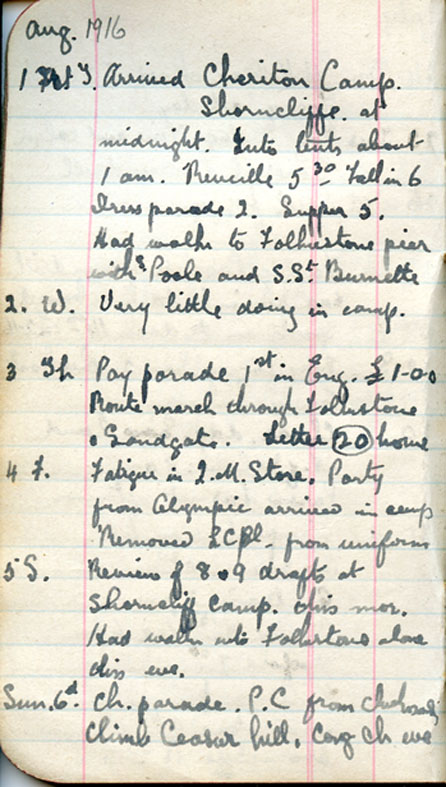 Aug. 1916
1 T. Arrived Cheriton Camp.
Shorncliffe. at
midnight. Into tents about
1 am. Reveille 5 30 Fall in 6
Dress parade 2. Supper 5.
Had walk to Folkestone pier
with Poole and S.St Burnette
2. W. Very little doing in camp.
3 Th Pay parade 1st in Eng. £1-0-0
Route march through Folkestone
& Sandgate. Letter 20 home
4 F. Fatigue in Q.M. Store. Party
from Olympic arrived in camp
Removed LCpl. from uniforms
5 S. Review of 8 & 9 drafts at
Shorncliff Camp. this mor.
Had walk into Folkestone alone
this eve.
Sun. 6th Ch. parade. P.C from
Climb Ceasar hill. Cong Ch eve